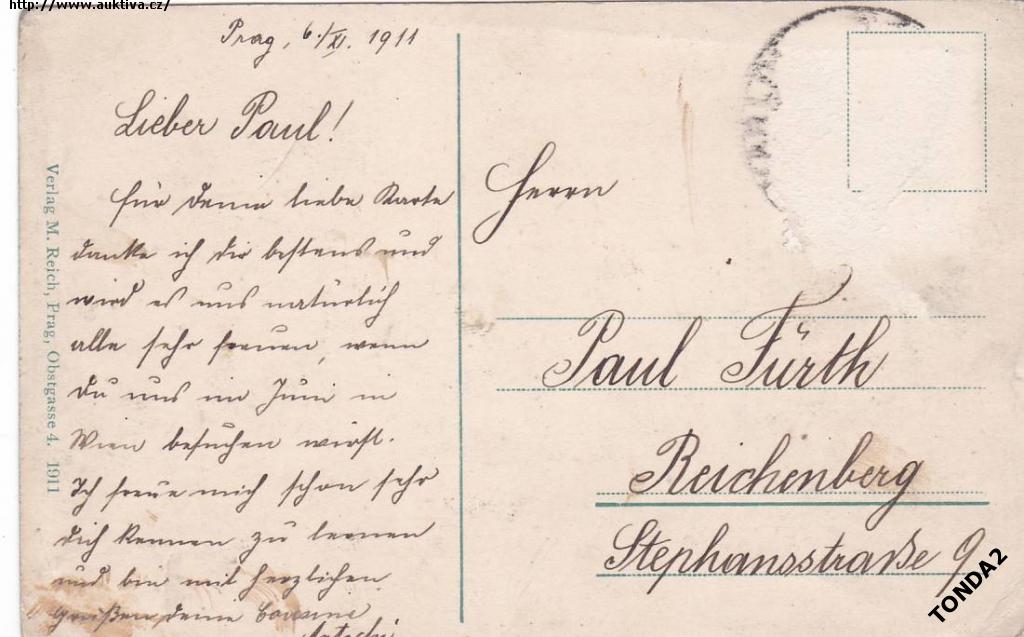 http://www.auktiva.cz/
Prag, 6./XI. 1911
Lieber Paul!
für deine liebe Karte
danke ich dir bestens und
wird es uns natürlich
alle sehr freuen, wenn
du uns im Juni in
Wien besuchen wirst.
Ich freue mich schon sehr
dich kennen zu lernen
und bin mit herzlichen
Grüßen deine Cousine
Verlag M. Reich, Prag, Obstgasse 4. 1911
Herrn
Paul Fürth
Reichenberg
Stephansstraße 9
TONDA2